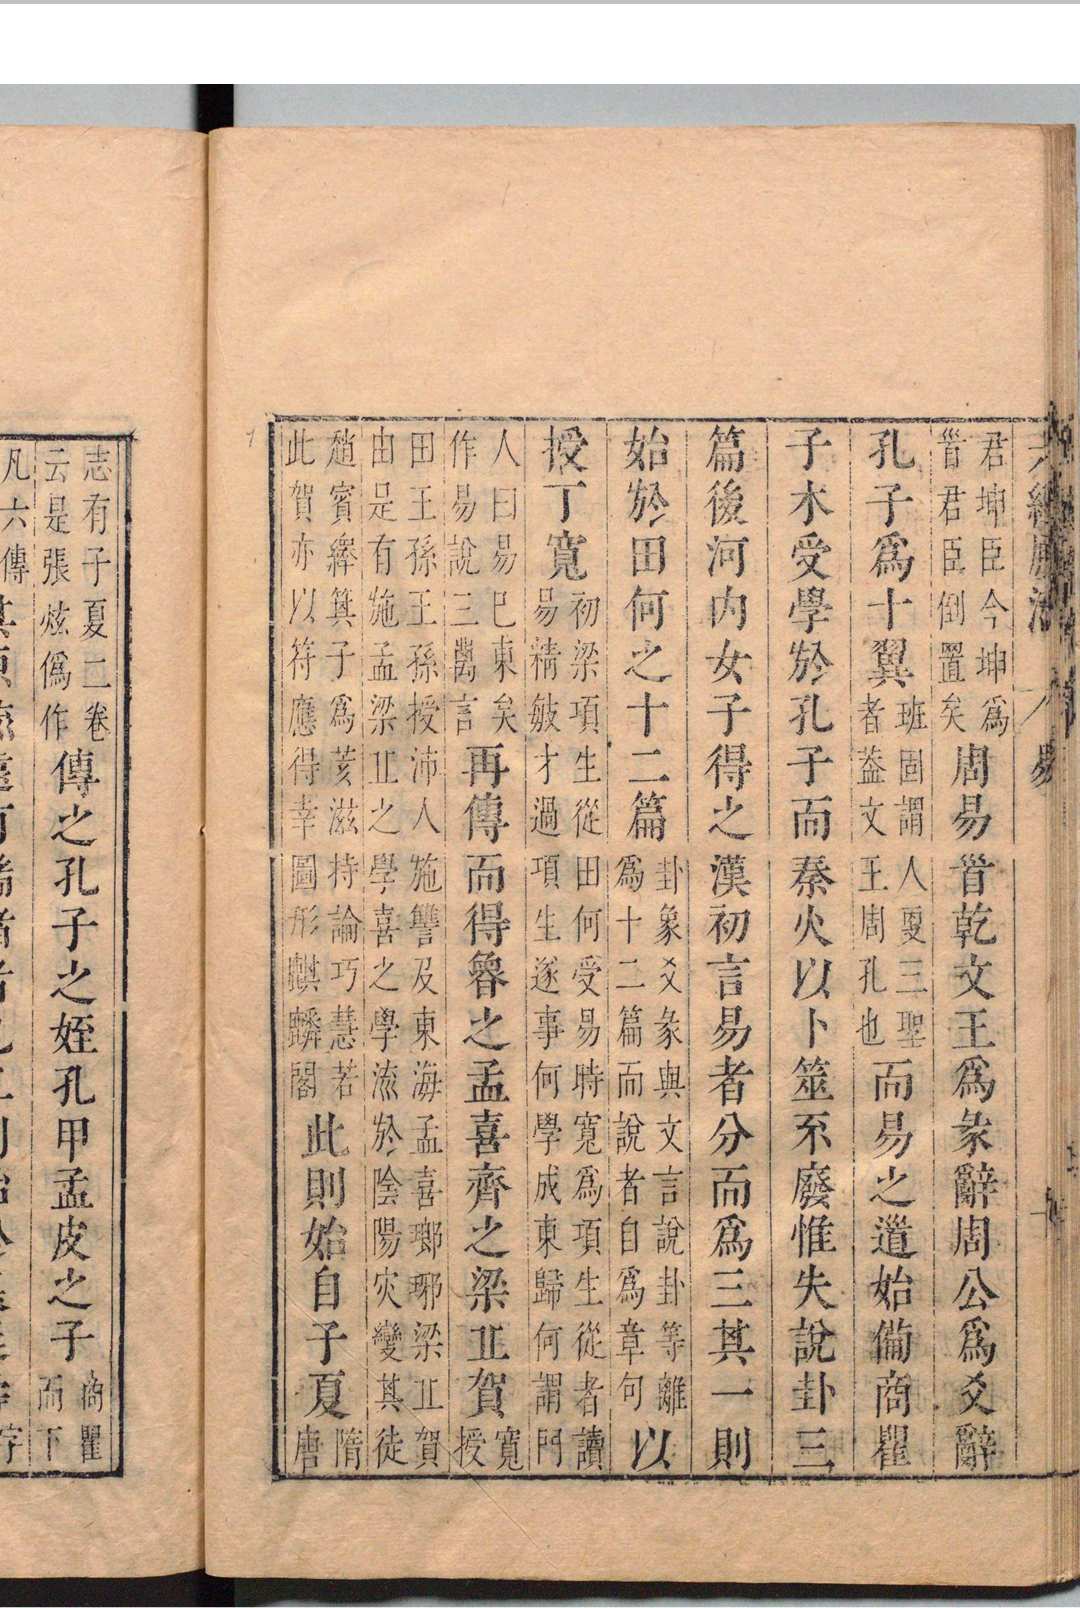 易
君坤臣今坤爲首君臣倒置矣周易首乾文王爲彖辭周公爲爻辭
孔子爲十翼班固謂人更三聖者葢文王周孔也而易之道始備商瞿
子木受學於孔子而秦火以卜筮不廢惟失說卦三
篇後河內女子得之漢初言易者分而爲三其一則
始於田何之十二篇卦象爻彖與文言說卦等離爲十二篇而說者自爲章句以
授丁寬初梁項生從田何受易時寬爲項生從者讀易精敏才過項生遂事何學成東歸何謂門
人曰易巳東矣作易說三萬言再傳而得魯之孟喜齊之梁丘賀寬授
田王孫王孫授沛人施讐及東海孟喜瑯琊梁丘賀由是有施孟梁丘之學喜之學流於陰陽灾變其徒
趙賓繹箕子爲荄滋持論巧慧若此賀亦以符應得幸圖形麒麟閣此則始自子夏隋唐
志有子夏二卷云是張炫僞作傳之孔子之姪孔甲孟皮之子商瞿而下
凡六傳